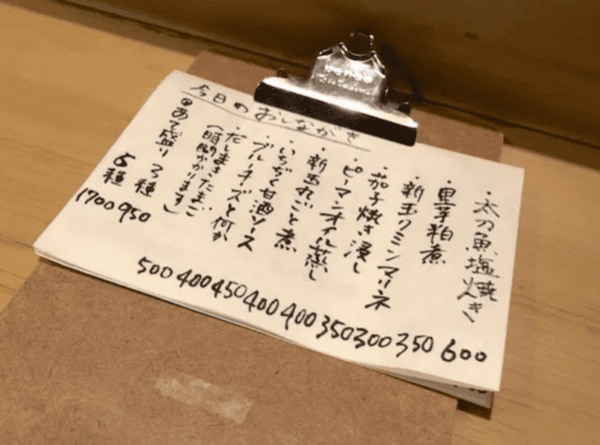 今日のおしながき
・太刀魚塩焼き 600
・里芋粕煮 350
・新玉クミンマリネ 300
・茄子焼き浸し 350
・ピーマンオイル蒸し 400
・新玉丸ごと煮 400
・いちぢく甘酒ソース 450
・ブルーチーズと何か 400
・だしまきたまご 500
(時間かかります)
◎あて盛り 3種 950
5種 1700